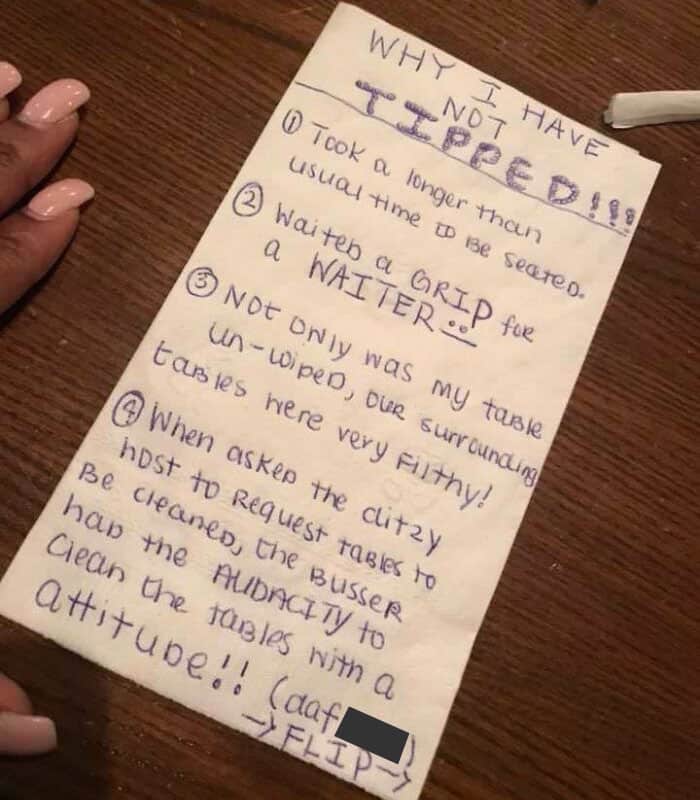 WHY I HAVE
NOT
TIPPED!!!
① Took a longer than
usual time to be seated.
② Waited a GRIP for
a WAITER
③ Not only was my table
un-wiped, our surrounding
tables were very filthy!
④ When asked the ditzy
host to request tables to
be cleaned, the busser
had the AUDACITY to
clean the tables with a
attitude!! (daf )
→FLIP→